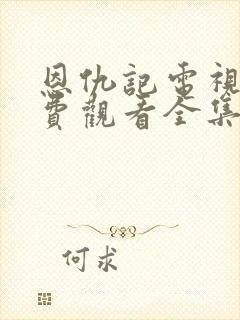 恩仇記電視
費觀看全集
何求